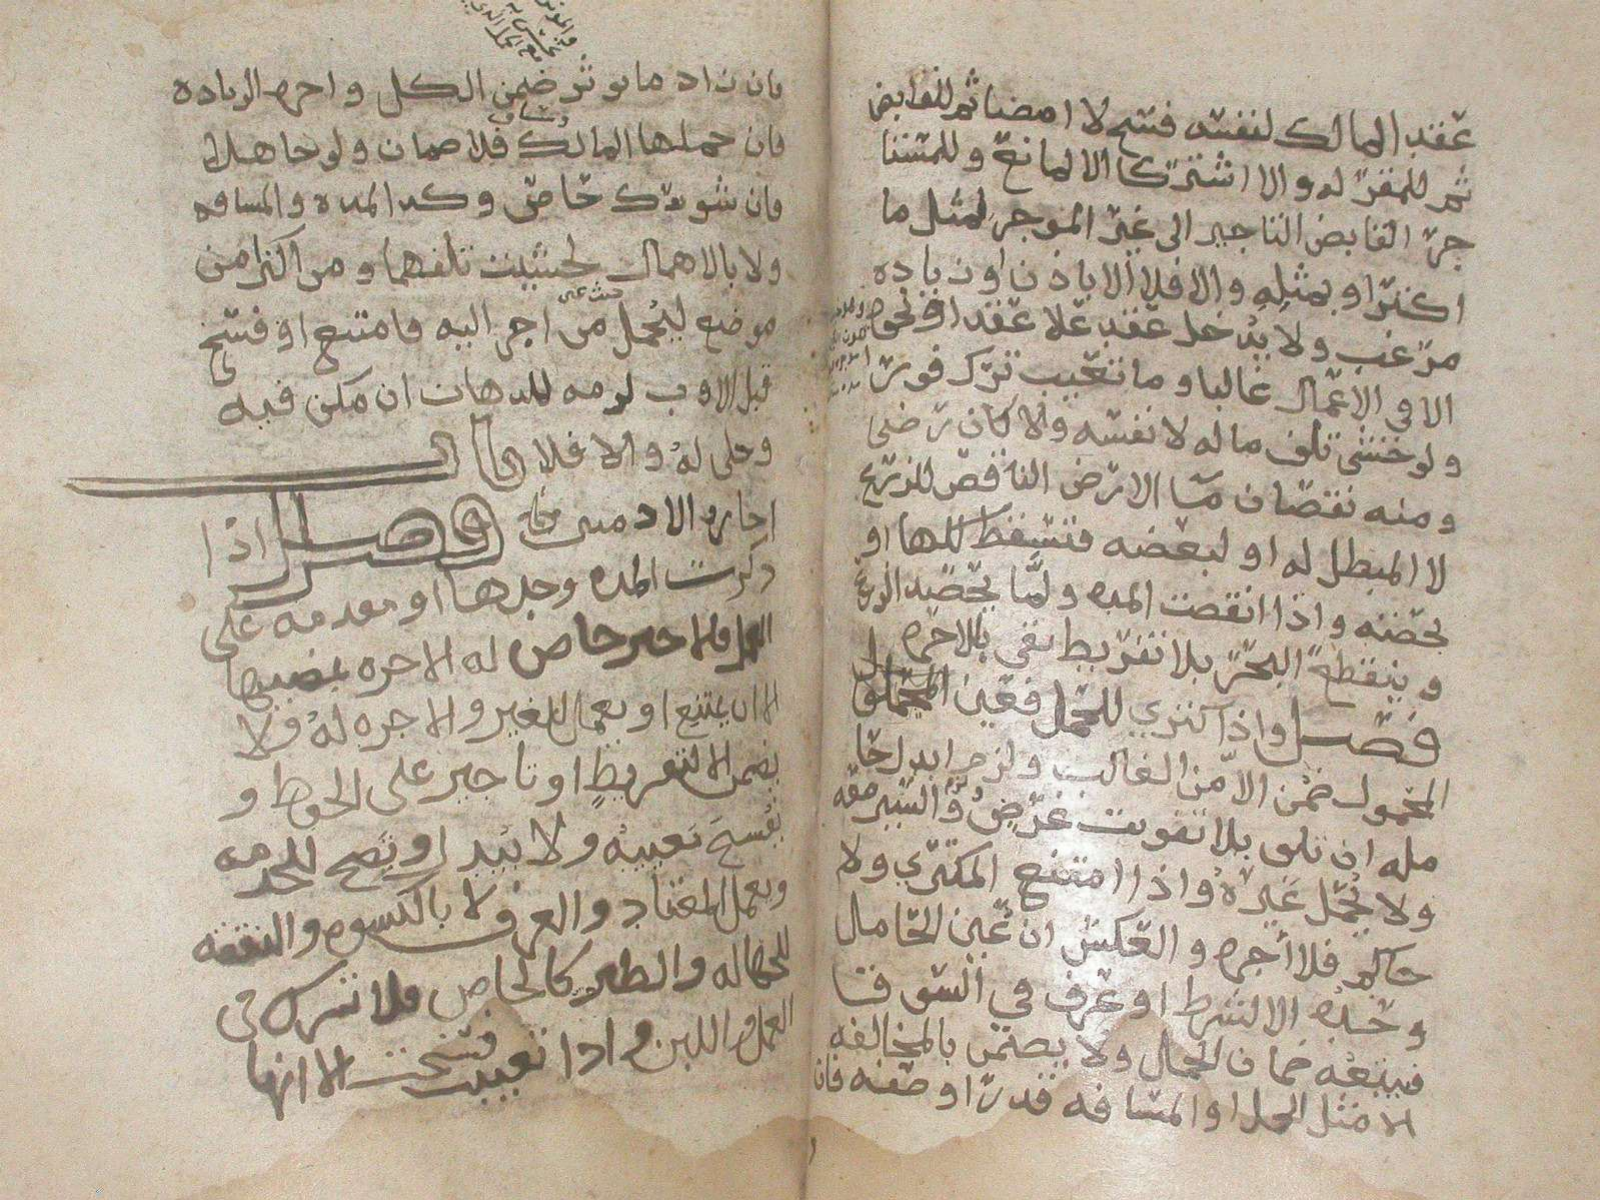 عقد المالك لنفسه فسخ لا امضا ثم للقابض
ثم للمقر له والا اشتركا الا لمانع وللمستا
جر القابض التاجير الى غير الموجر لمثل ما
اكترا وبمثله والا فلا الا باذن او زياده
مرغب ولا يدخل عقد علا عقد او نحوه
الا في الاعمال غالبا وما تعيب ترك فورا
ولو خشي تلف ماله لا نفسه والا كان رضى
ومنه نقصان ما الارض الناقص للزرع
لا المبطل له او لبعضه فتسقط كلها او
بحصته واذا انقضت المده ولما يحصد الزرع
وينقطع البحر بلا تفريط بقي بالاجره
فصل واذا اكتري للحمل فعين المحمل
المحمول ضمن الا من الغالب ولزم ابدال حا
مله ان تلف بلا تفويت غرض والسير معه
ولا يحمل غيره واذا امتنع المكتري ولا
حاكم فلا أجره والعكس ان عين الحامل
وحده الا لشرط او عرف في السوق فـ
فيتبعه ضمان الحمل ولا يضمن بالمخالفه
الا مثل الحمل او المسافه قدرا وصفه فان
فان زاد ما يوثر ضمن الكل واجره الزياده
فان حملها المالك فلا ضمان ولو جاهلا
فان شورك خاص وكد المده والمسافه
ولا بالاهمال لخشيت تلفهما ومن اكترا من
موضع ليحمل من اجر اليه فامتنع او فسخ
قبل الاوب لزمه للدهاب ان مكن فيه
وخلى له والا فلا باب
اجاره الادميين فصل اذا
ذكرت المده وحدها او مقدمه على
العمل فالاجير خاص له الاجره بمضيها
الا ان يمتنع او يعمل للغير والاجره له ولا
يضمن الا لتفريط او تاجير على الحفظ و
يفسخ تعييبه ولا يبدل ويصح للخدمه
ويعمل المعتاد والعرف لا بالكسوه والنفقه
للجهاله والظير كالخاص فلا تشرك في
العمل واللبن واذا تعيبت فسخت الا انها